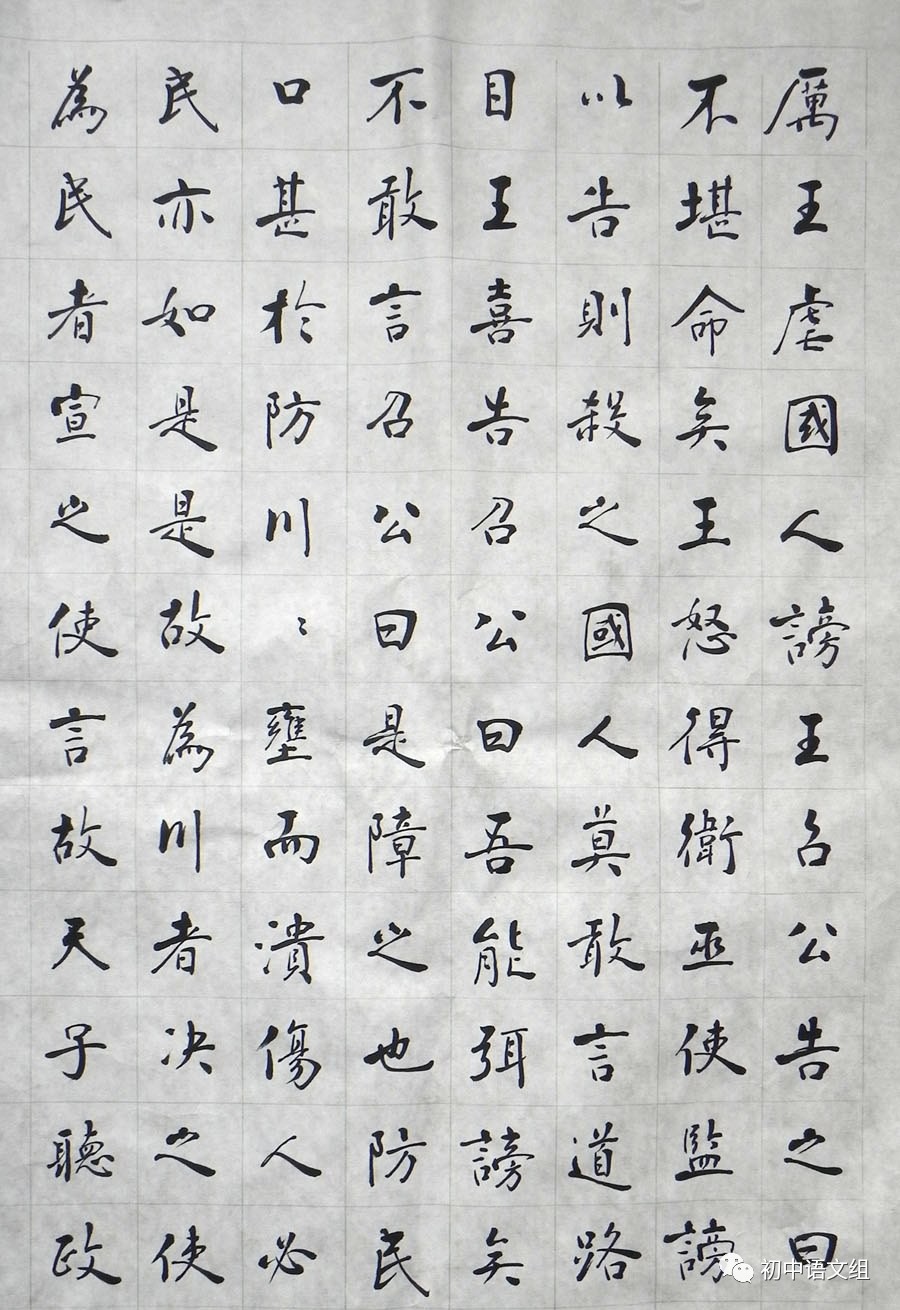 厲王虐國人謗王召公告之曰
不堪命矣王怒得衛巫使監謗
以告則殺之國人莫敢言道路
目王喜告召公曰吾能弭謗矣
不敢言召公曰是障之也防民
口甚於防川〻壅而潰傷人必
民亦如是是故為川者决之使
為民者宣之使言故天子聽政
初中语文组